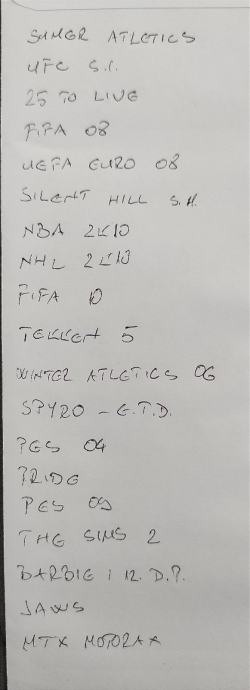 SUMER ATLETICS
UFC S.C.
25 TO LIVE
FIFA 08
UEFA EURO 08
SILENT HILL S.M.
NBA 2K10
NHL 2K10
FIFA 10
TEKKEN 5
WINTER ATLETICS 06
SPYRO - E.T.D.
PES 04
PRIDE
PES 09
THE SIMS 2
BARBIE i 12. D.P.
JAWS
MTX MOTOTRAX